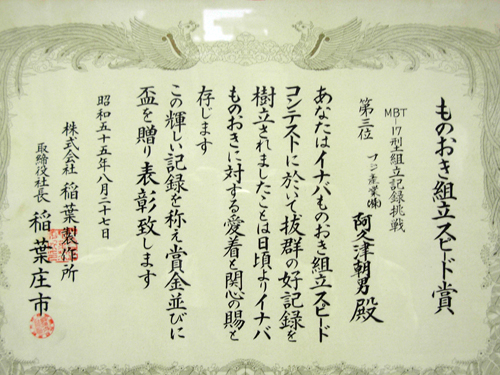 ものおき組立スピード賞
MBT-17型組立記録挑戦
第三位 フジ産業㈱ 阿久津朝男殿
あなたはイナバものおき組立スピード
コンテストに於いて抜群の好記録を
樹立されましたことは日頃よりイナバ
ものおきに対する愛着と関心の賜と
存じます
この輝しい記録を称え賞金並びに
盃を贈り表彰致します
昭和五十五年八月二十七日
株式会社 稲葉製作所
取締役社長 稲葉庄市